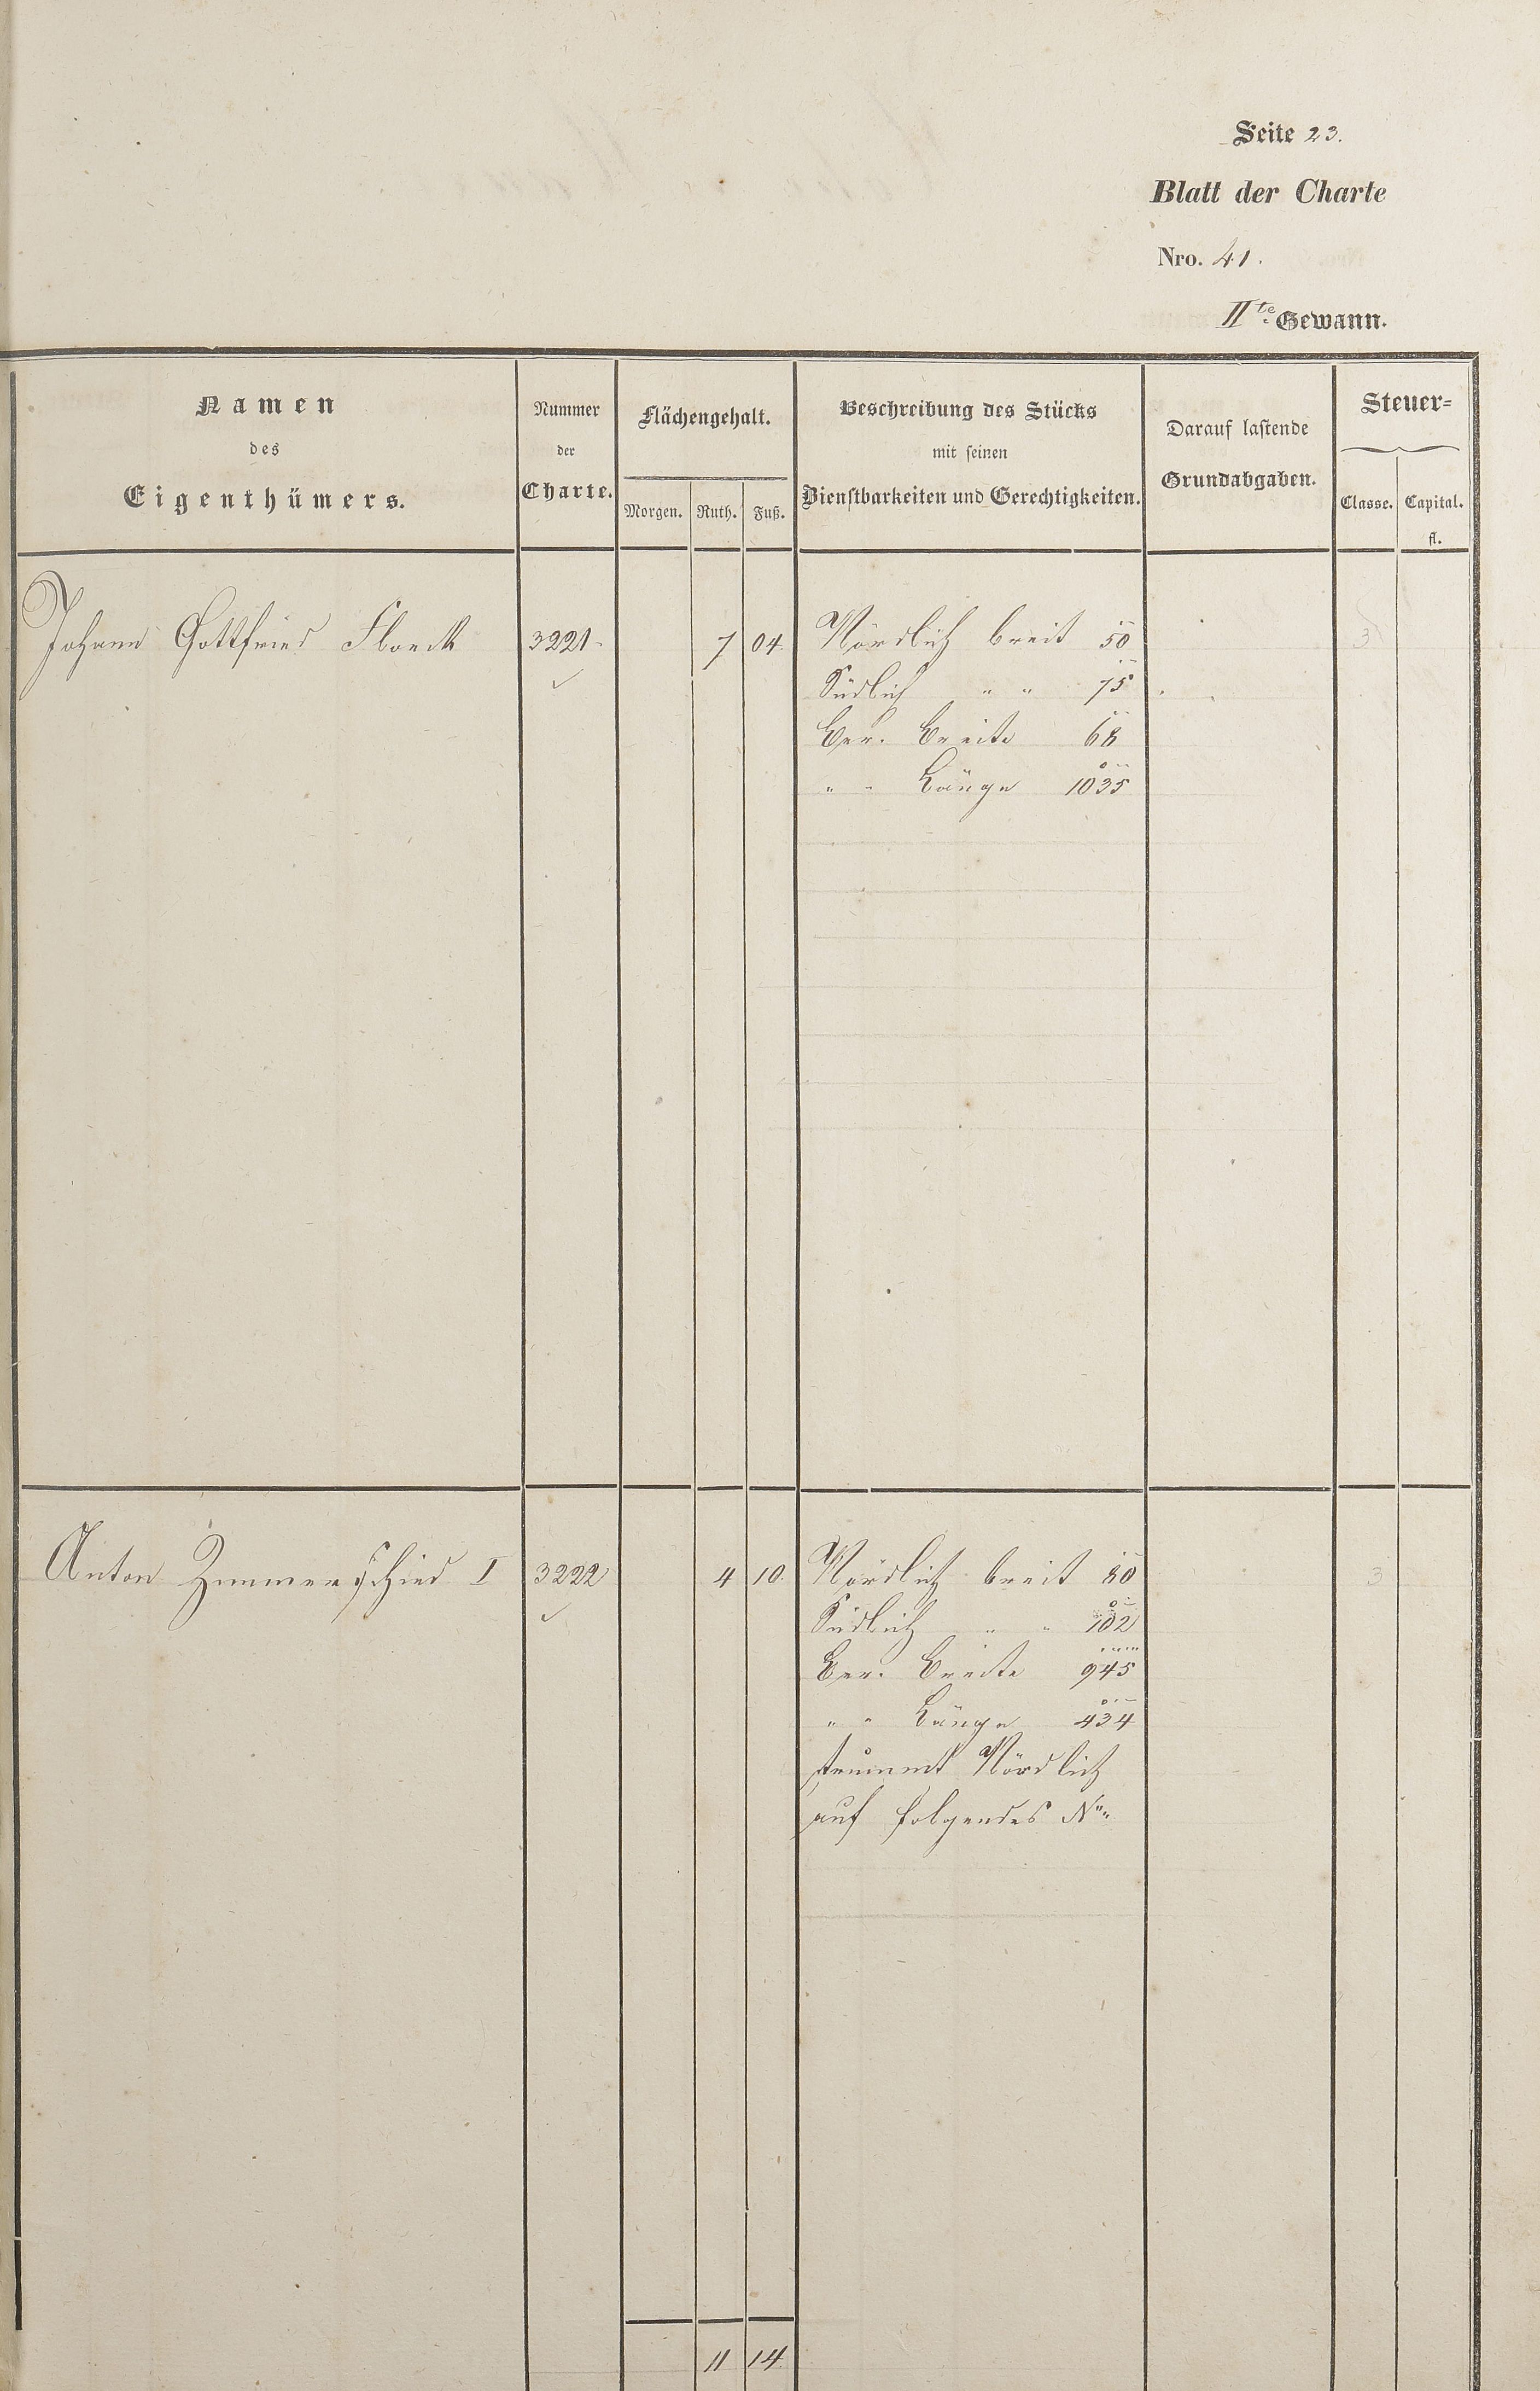 Seite 23.
Blatt der Charte
Nro. 41.
IIte Gewann.
Namen
des
Eigenthümers.
Nummer
der
Charte.
Flächengehalt.
Morgen. Ruth. Fuß.
Beschreibung des Stücks
mit seinen
Dienstbarkeiten und Gerechtigkeiten.
Darauf lastende
Grundabgaben.
Steuer=
Classe. Capital.
fl.
Johann Gottfried Floeck 3221 7 04 Nördlich breit 50 3
Südlich " " 75
Ber. Breite 68
" " Länge 1035
Anton Zimmerschied I 3222 4 10 Nördlich breit 80 3
Südlich " " 102
Ber. Breite 945
" " Länge 434
Nördlich
auf folgendes
11 14